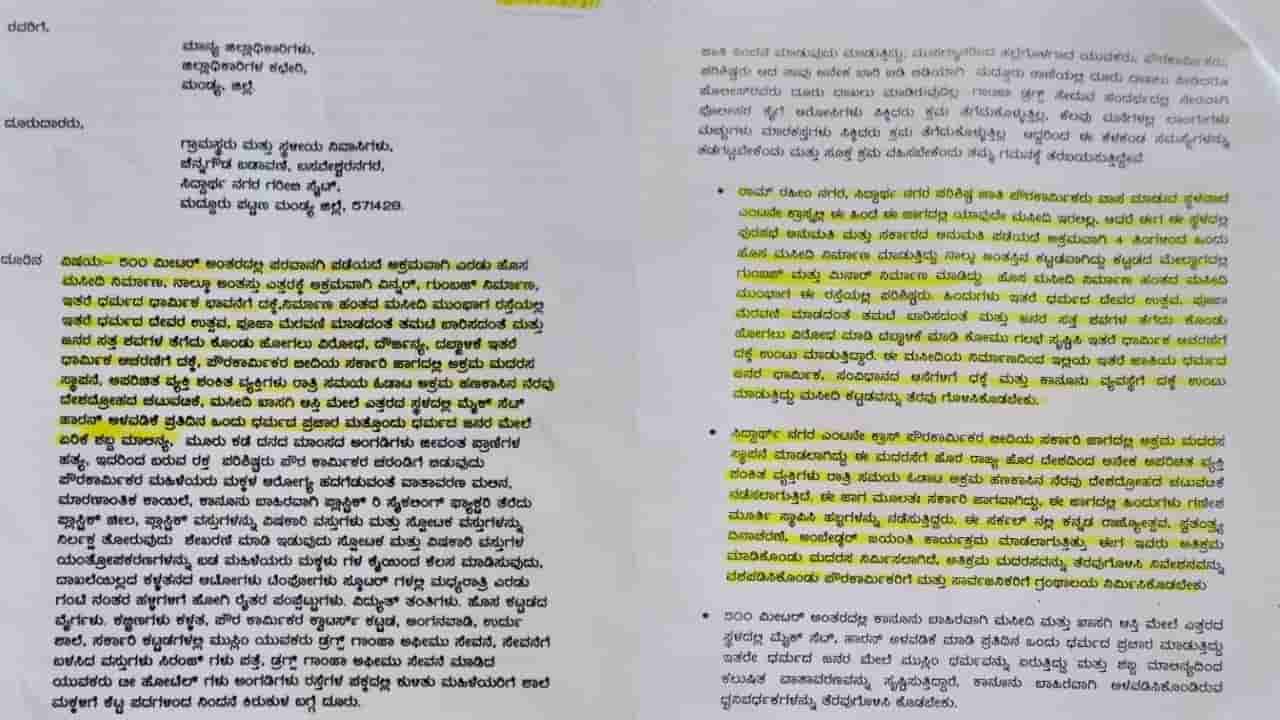 ರವರಿಗೆ,
ಮಾನ್ಯ ಜಿಲ್ಲಾಧಿಕಾರಿಗಳು,
ಜಿಲ್ಲಾಧಿಕಾರಿಗಳ ಕಛೇರಿ,
ಮಂಡ್ಯ, ಜಿಲ್ಲೆ
ದೂರುದಾರರು,
ಗ್ರಾಮಸ್ಥರು ಮತ್ತು ಸ್ಥಳೀಯ ನಿವಾಸಿಗಳು,
ಚೆನ್ನಗೌಡ ಬಡಾವಣೆ, ಬಸವೇಶ್ವರನಗರ,
ಸಿದ್ದಾರ್ಥ ನಗರ ಗರೀಬಿ ಸೈಟ್,
ಮದ್ದೂರು ಪಟ್ಟಣ ಮಂಡ್ಯ ಜಿಲ್ಲೆ, 571429.
ದೂರಿನ ವಿಷಯ:- 500 ಮೀಟರ್ ಅಂತರದಲ್ಲಿ ಪರವಾನಗಿ ಪಡೆಯದೆ ಅಕ್ರಮವಾಗಿ ಎರಡು ಹೊಸ
ಮಸೀದಿ ನಿರ್ಮಾಣ, ನಾಲ್ಕೂ ಅಂತಸ್ತು ಎತ್ತರಕ್ಕೆ ಅಕ್ರಮವಾಗಿ ವಿನ್ನರ್, ಗುಂಬಜ್ ನಿರ್ಮಾಣ,
ಇತರೆ ಧರ್ಮದ ಧಾರ್ಮಿಕ ಭಾವನೆಗೆ ದಕ್ಕೆ,ನಿರ್ಮಾಣ ಹಂತದ ಮಸೀದಿ ಮುಂಭಾಗ ರಸ್ತೆಯಲ್ಲಿ
ಇತರೆ ಧರ್ಮದ ದೇವರ ಉತ್ಸವ, ಪೂಜಾ ಮೆರವಣಿ ಮಾಡದಂತೆ ತಮಟೆ ಬಾರಿಸದಂತೆ ಮತ್ತು
ಜನರ ಸತ್ತ ಶವಗಳ ತೆಗೆದು ಕೊಂಡು ಹೋಗಲು ವಿರೋಧ, ದೌರ್ಜನ್ಯ, ದಬ್ಬಾಳಿಕೆ ಇತರೆ
ಧಾರ್ಮಿಕ ಆಚರಣೆಗೆ ದಕ್ಕೆ, ಪೌರಕಾರ್ಮಿಕರ ಬೀದಿಯ ಸರ್ಕಾರಿ ಜಾಗದಲ್ಲಿ ಅಕ್ರಮ ಮದರಸ
ಸ್ಥಾಪನೆ, ಅಪರಿಚಿತ ವ್ಯಕ್ತಿ ಶಂಕಿತ ವ್ಯಕ್ತಿಗಳು ರಾತ್ರಿ ಸಮಯ ಓಡಾಟ ಅಕ್ರಮ ಹಣಕಾಸಿನ ನೆರವು
ದೇಶದ್ರೋಹದ ಚಟುವಟಿಕೆ, ಮಸೀದಿ ಖಾಸಗಿ ಆಸ್ತಿ ಮೇಲೆ ಎತ್ತರದ ಸ್ಥಳದಲ್ಲಿ ಮೈಕ್ ಸೆಟ್
ಹಾರನ್ ಅಳವಡಿಕೆ ಪ್ರತಿದಿನ ಒಂದು ಧರ್ಮದ ಪ್ರಚಾರ ಮತ್ತೊಂದು ಧರ್ಮದ ಜನರ ಮೇಲೆ
ಏರಿಕೆ ಶಬ್ಧ ಮಾಲಿನ್ಯ, ಮೂರು ಕಡೆ ದನದ ಮಾಂಸದ ಅಂಗಡಿಗಳು ಜೀವಂತ ಪ್ರಾಣಿಗಳ
ಹತ್ಯೆ, ಇದರಿಂದ ಬರುವ ರಕ್ತ ಪರಿಶಿಷ್ಟರು ಪೌರ ಕಾರ್ಮಿಕರ ಚರಂಡಿಗೆ ಬಿಡುವುದು
ಪೌರಕಾರ್ಮಿಕರ ಮಹಿಳೆಯರು ಮಕ್ಕಳ ಆರೋಗ್ಯ ಹದಗೆಡುವಂತೆ ವಾತಾವರಣ ಮಲಿನ,
ಮಾರಣಾಂತಿಕ ಕಾಯಿಲೆ, ಕಾನೂನು ಬಾಹಿರವಾಗಿ ಪ್ಲಾಸ್ಟಿಕ್ ರಿ ಸೈಕಲಿಂಗ್ ಫ್ಯಾಕ್ಟರಿ ತೆರೆದು
ಪ್ಲಾಸ್ಟಿಕ್ ಚೀಲ, ಪ್ಲಾಸ್ಟಿಕ್ ವಸ್ತುಗಳನ್ನು ವಿಷಕಾರಿ ವಸ್ತುಗಳು ಮತ್ತು ಸ್ಪೋಟಕ ವಸ್ತುಗಳನ್ನು
ನಿರ್ಲಕ್ಷ ತೋರುವುದು ಶೇಖರಣೆ ಮಾಡಿ ಇಡುವುದು ಸ್ಪೋಟಕ ಮತ್ತು ವಿಷಕಾರಿ ವಸ್ತುಗಳ
ಯಂತ್ರೋಪಕರಣಗಳನ್ನು ಬಡ ಮಹಿಳೆಯರು ಮಕ್ಕಳು ಗಳ ಕೈಯಿಂದ ಕೆಲಸ ಮಾಡಿಸುವುದು,
ದಾಖಲೆಯಿಲ್ಲದ ಕಳ್ಳತನದ ಆಟೋಗಳು ಟೆಂಪೋಗಳು ಸ್ಕೂಟರ್ ಗಳಲ್ಲಿ ಮಧ್ಯರಾತ್ರಿ ಎರಡು
ಗಂಟೆ ನಂತರ ಹಳ್ಳಿಗಳಿಗೆ ಹೋಗಿ ರೈತರ ಪಂಪ್ಸೆಟ್ಟುಗಳು. ವಿದ್ಯುತ್ ತಂತಿಗಳು. ಹೊಸ ಕಟ್ಟಡದ
ವೈರ್ಗಳು. ಕಬ್ಬಿಣಗಳು ಕಳ್ಳತ, ಪೌರ ಕಾರ್ಮಿಕರ ಕ್ವಾಟರ್ಸ್ ಕಟ್ಟಡ, ಅಂಗನವಾಡಿ, ಉರ್ದು
ಶಾಲೆ, ಸರ್ಕಾರಿ ಕಟ್ಟಡಗಳಲ್ಲಿ ಮುಸ್ಲಿಂ ಯುವಕರು ಡ್ರಗ್ಸ್ ಗಾಂಜಾ ಅಫೀಮು ಸೇವನೆ, ಸೇವನೆಗೆ
ಬಳಸಿದ ವಸ್ತುಗಳು ಸಿರಂಜ್ ಗಳು ಪತ್ತೆ, ಡ್ರಗ್ಸ್ ಗಾಂಜಾ ಅಫೀಮು ಸೇವನೆ ಮಾಡಿದ
ಯುವಕರು ಟೀ ಹೋಟೆಲ್ ಗಳು ಅಂಗಡಿಗಳು ರಸ್ತೆಗಳ ಪಕ್ಕದಲ್ಲಿ ಕುಳಿತು ಮಹಿಳೆಯರಿಗೆ ಶಾಲೆ
ಮಕ್ಕಳಿಗೆ ಕೆಟ್ಟ ಪದಗಳಿಂದ ನಿಂದನೆ ಕಿರುಕುಳ ಬಗ್ಗೆ ದೂರು.
ಜಾತಿ ನಿಂದನೆ ಮಾಡುವುದು ಮಾಡುತ್ತಿದ್ದು, ಯುವಕರು, ಪೌರಕಾರ್ಮಿಕರು,
ಪರಿಶಿಷ್ಟರು ಆದ ನಾವು ಅನೇಕ ಬಾರಿ ಮದ್ದೂರು ಠಾಣೆಯಲ್ಲಿ ದೂರು ದಾಖಲು
ಪೊಲೀಸ್‌ನವರು ದೂರು ದಾಖಲು ಮಾಡಿರುವುದಿಲ್ಲ ಗಾಂಜಾ ಡ್ರಗ್ಸ್ ಸೇದುವ ಸಂದರ್ಭದಲ್ಲಿ
ಪೊಲೀಸರ ಕೈಗೆ ಆರೋಪಿಗಳು ಸಿಕ್ಕಿದರು ಕ್ರಮ ತೆಗೆದುಕೊಳ್ಳುತ್ತಿಲ್ಲ, ಕೆಲವು
ಮಚ್ಚುಗಳು ಮಾರಕಾಸ್ತ್ರಗಳು ಸಿಕ್ಕಿದರು ಕ್ರಮ ತೆಗೆದುಕೊಳ್ಳುತ್ತಿಲ್ಲ ಆದ್ದರಿಂದ ಈ ಕೆಳಕಂಡ ಸಮಸ್ಯೆಗಳನ್ನು
ತಡೆಗಟ್ಟಬೇಕೆಂದು ಮತ್ತು ಸೂಕ್ತ ಕ್ರಮ ವಹಿಸಬೇಕೆಂದು ತಮ್ಮ ಗಮನಕ್ಕೆ ತರಬಯಸುತ್ತಿದ್ದೇವೆ.
• ರಾಮ್ ರಹೀಂ ನಗರ, ಸಿದ್ಧಾರ್ಥ ನಗರ ಪರಿಶಿಷ್ಟ ಜಾತಿ ಪೌರಕಾರ್ಮಿಕರು ವಾಸ ಮಾಡುವ ಸ್ಥಳವಾದ
ಎಂಟನೇ ಕ್ರಾಸ್ನಲ್ಲಿ ಈ ಹಿಂದೆ ಈ ಜಾಗದಲ್ಲಿ ಯಾವುದೇ ಮಸೀದಿ ಇರಲಿಲ್ಲ, ಆದರೆ ಈಗ ಈ ಸ್ಥಳದಲ್ಲಿ
ಪುರಸಭೆ ಅನುಮತಿ ಮತ್ತು ಸರ್ಕಾರದ ಅನುಮತಿ ಪಡೆಯದೆ ಅಕ್ರಮವಾಗಿ 4 ತಿಂಗಳಿಂದ ಒಂದು
ಹೊಸ ಮಸೀದಿ ನಿರ್ಮಾಣ ಮಾಡುತ್ತಿದ್ದು ನಾಲ್ಕು ಅಂತಸ್ತಿನ ಕಟ್ಟಡವಾಗಿದ್ದು ಕಟ್ಟಡದ ಮೇಲ್ಭಾಗದಲ್ಲಿ
ಗುಂಬಜ್ ಮತ್ತು ಮಿನಾರ್ ನಿರ್ಮಾಣ ಮಾಡಿದ್ದು ಹೊಸ ಮಸೀದಿ ನಿರ್ಮಾಣ ಹಂತದ ಮಸೀದಿ
ಮುಂಭಾಗ ಈ ರಸ್ತೆಯಲ್ಲಿ ಪರಿಶಿಷ್ಟರು, ಹಿಂದುಗಳು ಇತರೆ ಧರ್ಮದ ದೇವರ ಉತ್ಸವ, ಪೂಜಾ
ಮೆರವಣಿ ಮಾಡದಂತೆ ತಮಟೆ ಬಾರಿಸದಂತೆ ಮತ್ತು ಜನರ ಸತ್ತ ಶವಗಳ ತೆಗೆದು ಕೊಂಡು
ಹೋಗಲು ವಿರೋಧ ಮಾಡಿ ದಬ್ಬಾಳಿಕೆ ಮಾಡಿ ಕೋಮು ಗಲಭೆ ಸೃಷ್ಟಿಸಿ ಇತರೆ ಧಾರ್ಮಿಕ ಆಚರಣೆಗೆ
ದಕ್ಕೆ ಉಂಟು ಮಾಡುತ್ತಿದ್ದಾರೆ. ಈ ಮಸೀದಿಯ ನಿರ್ಮಾಣದಿಂದ ಇಲ್ಲಿಯ ಇತರೆ ಜಾತಿಯ ಧರ್ಮದ
ಜನರ ಧಾರ್ಮಿಕ, ಸಂವಿಧಾನದ ಆಸೆಗಳಿಗೆ ಧಕ್ಕೆ ಮತ್ತು ಕಾನೂನು ವ್ಯವಸ್ಥೆಗೆ ದಕ್ಕೆ ಉಂಟು
ಮಾಡುತ್ತಿದ್ದು ಮಸೀದಿ ಕಟ್ಟಡವನ್ನು ತೆರವು ಗೊಳಿಸಿಕೊಡಬೇಕು.
• ಸಿದ್ದಾರ್ಥ್ ನಗರ ಎಂಟನೇ ಕ್ರಾಸ್ ಪೌರಕಾರ್ಮಿಕರ ಬೀದಿಯ ಸರ್ಕಾರಿ ಜಾಗದಲ್ಲಿ ಅಕ್ರಮ ಮದರಸ
ಸ್ಥಾಪನೆ ಮಾಡಲಾಗಿದ್ದು ಈ ಮದರಸೆಗೆ ಹೊರ ರಾಜ್ಯ ಹೊರ ದೇಶದಿಂದ ಅನೇಕ ಅಪರಿಚಿತ ವ್ಯಕ್ತಿ
ಶಂಕಿತ ವ್ಯಕ್ತಿಗಳು ರಾತ್ರಿ ಸಮಯ ಓಡಾಟ ಅಕ್ರಮ ಹಣಕಾಸಿನ ನೆರವು ದೇಶದ್ರೋಹದ ಚಟುವಟಿಕೆ
ನಡೆಸಲಾಗುತ್ತಿದೆ. ಈ ಜಾಗ ಮೂಲತಃ ಸರ್ಕಾರಿ ಜಾಗವಾಗಿದ್ದು, ಈ ಜಾಗದಲ್ಲಿ ಹಿಂದುಗಳು ಗಣೇಶ
ಮೂರ್ತಿ ಸ್ಥಾಪಿಸಿ ಹಬ್ಬಗಳನ್ನು ನಡೆಸುತ್ತಿದ್ದರು. ಈ ಸರ್ಕಲ್ ನಲ್ಲಿ ಕನ್ನಡ ರಾಜ್ಯೋತ್ಸವ, ಸ್ವತಂತ್ರ್ಯ
ದಿನಾಚರಣೆ, ಅಂಬೇಡ್ಕರ್ ಜಯಂತಿ ಕಾರ್ಯಕ್ರಮ ಮಾಡಲಾಗುತ್ತಿತ್ತು ಈಗ ಇವರು ಅತಿಕ್ರಮ
ಮಾಡಿಕೊಂಡು ಮದರಸ ನಿರ್ಮಿಸಲಾಗಿದೆ, ಅತಿಕ್ರಮ ಮದರಸವನ್ನು ತೆರವುಗೊಳಿಸಿ ನಿವೇಶನವನ್ನು
ವಶಪಡಿಸಿಕೊಂಡು ಪೌರಕಾರ್ಮಿಕರಿಗೆ ಮತ್ತು ಸಾರ್ವಜನಿಕರಿಗೆ ಗ್ರಂಥಾಲಯ ನಿರ್ಮಿಸಿಕೊಡಬೇಕು
• 500 ಮೀಟರ್ ಅಂತರದಲ್ಲಿ ಕಾನೂನು ಬಾಹಿರವಾಗಿ ಮಸೀದಿ ಮತ್ತು ಖಾಸಗಿ ಆಸ್ತಿ ಮೇಲೆ ಎತ್ತರದ
ಸ್ಥಳದಲ್ಲಿ ಮೈಕ್ ಸೆಟ್, ಹಾರನ್ ಅಳವಡಿಕೆ ಮಾಡಿ ಪ್ರತಿದಿನ ಒಂದು ಧರ್ಮದ ಪ್ರಚಾರ ಮಾಡುತ್ತಿದ್ದು
ಇತರೇ ಧರ್ಮದ ಜನರ ಮೇಲೆ ಮುಸ್ಲಿಂ ಧರ್ಮವನ್ನು ಏರುತ್ತಿದ್ದು ಮತ್ತು ಶಬ್ಧ ಮಾಲಿನ್ಯದಿಂದ
ಕಲುಷಿತ ವಾತಾವರಣವನ್ನು ಸೃಷ್ಟಿಸುತ್ತಿದ್ದಾರೆ, ಕಾನೂನು ಬಾಹಿರವಾಗಿ ಅಳವಡಿಸಿಕೊಂಡಿರುವ
ಧ್ವನಿವರ್ಧಕಗಳನ್ನು ತೆರವುಗೊಳಿಸಿ ಕೊಡಬೇಕು.